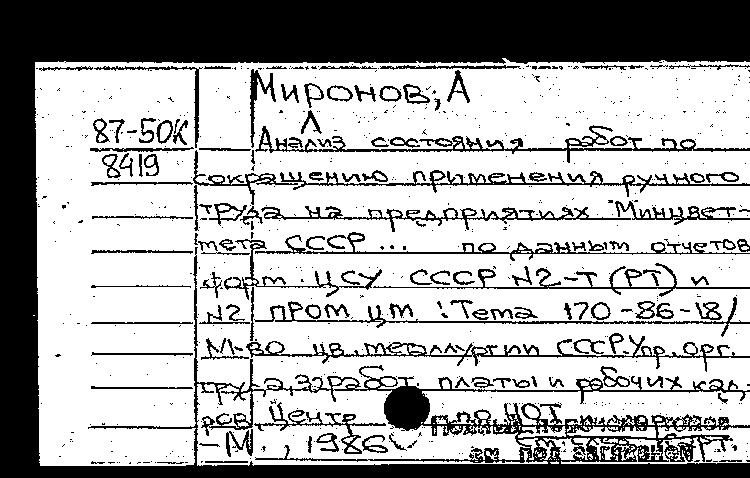 Миронов, А
87-50К
8419
Анализ состояния работ по
сокращению применения ручного
труда на предприятиях Минцвет-
мета СССР... по данным отчетов
форм ЦСУ СССР N2-Т (РТ) и
N2 ПРОМ ЦМ : Тема 170-86-18/
М-во цв. металлургии СССР. Упр. орг.
труда, заработ. платы и рабочих кад-
ров, Центр по НОТ
-М., 1986
см. под заглавном